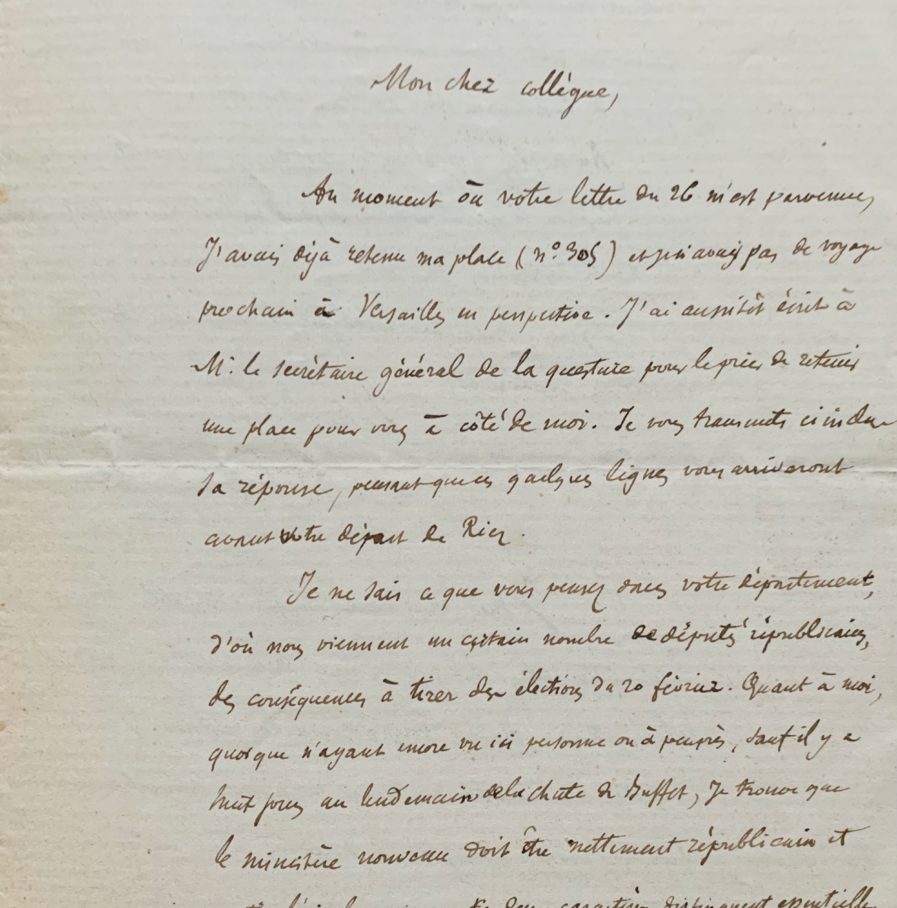 Mon cher collègue,
Au moment où votre lettre du 26 m'est parvenue,
J'avais déjà retenu ma place (n° 305) et je n'avais pas de voyage
prochain à Versailles en perspective. J'ai aussitôt écrit à
M. le secrétaire général de la questure pour le prier de retenir
une place pour vous à côté de moi. Je vous transmets ci incluse
sa réponse, pensant que ces quelques lignes vous arriveront
avant votre départ de Riez.
Je ne sais ce que vous pensez dans votre département,
d'où nous viennent un certain nombre de députés républicains,
des conséquences à tirer des élections du 20 février. Quant à moi,
quoique n'ayant encore vu ici personne ou à peu près, sauf il y a
huit jours au lendemain de la chute de Buffet, je trouve que
le ministère nouveau doit être nettement républicain et
caractère essentielle